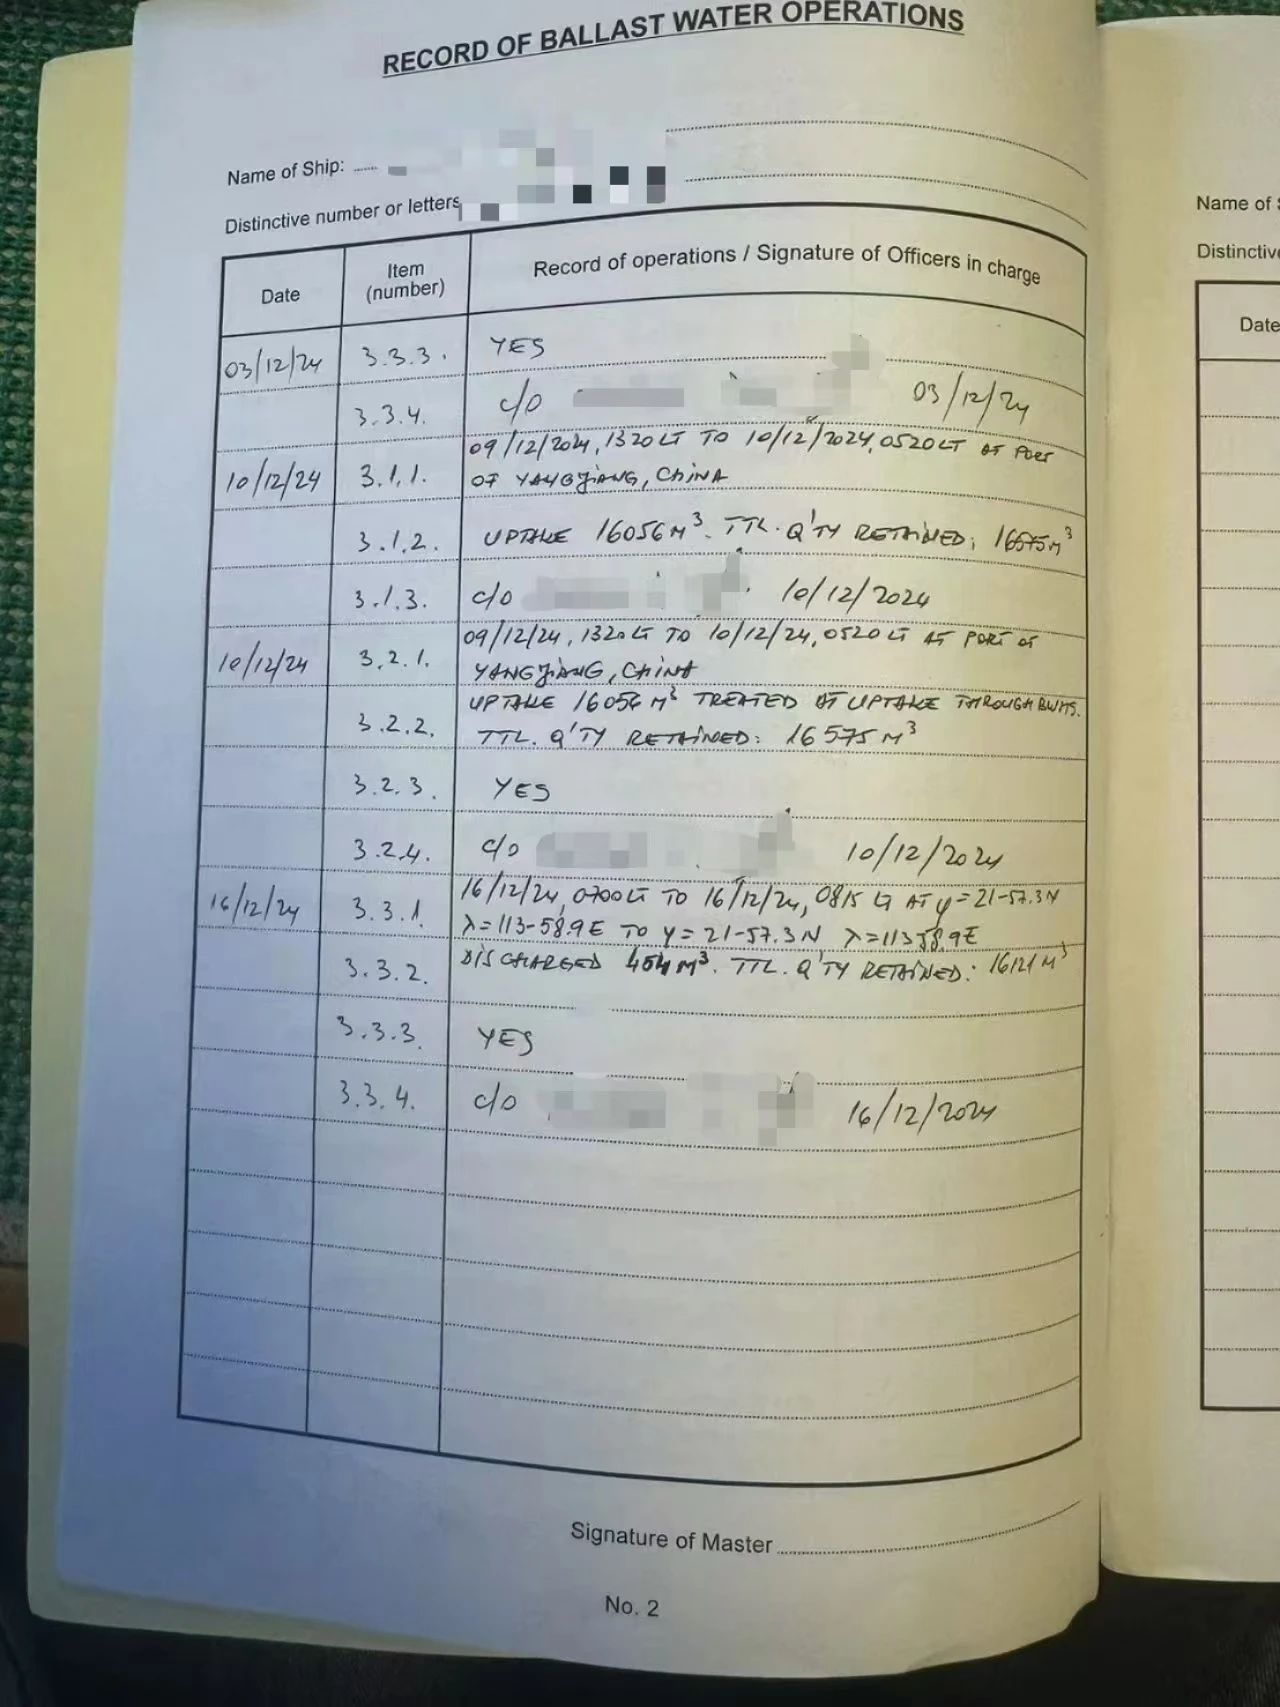 RECORD OF BALLAST WATER OPERATIONS
Name of Ship:
Name of
Distinctive number or letters
Distinctiv
Date
Item
(number)
Record of operations / Signature of Officers in charge
Date
03/12/24 3.3.3. YES
3.3.4. C/O 03/12/24
10/12/24 3.1.1. 09/12/2024, 1320 LT TO 10/12/2024, 0520 LT AT PORT
OF YANGJIANG, CHINA
3.1.2. UPTAKE 16056 M³. TTL. Q'TY RETAINED: 16575 M³
3.1.3. C/O 10/12/2024
10/12/24 3.2.1. 09/12/24, 1320 LT TO 10/12/24, 0520 LT AT PORT OF
YANGJIANG, CHINA
3.2.2. UPTAKE 16056 M³ TREATED AT UPTAKE THROUGH BWMS.
TTL. Q'TY RETAINED: 16575 M³
3.2.3. YES
3.2.4. C/O 10/12/2024
16/12/24 3.3.1. 16/12/24, 0700 LT TO 16/12/24, 0815 LT AT φ=21-57.3N
λ=113-58.9E TO φ=21-57.3N λ=113 58.9E
3.3.2. DISCHARGED 454 M³. TTL. Q'TY RETAINED: 16121 M³
3.3.3. YES
3.3.4. C/O 16/12/2024
Signature of Master
No. 2